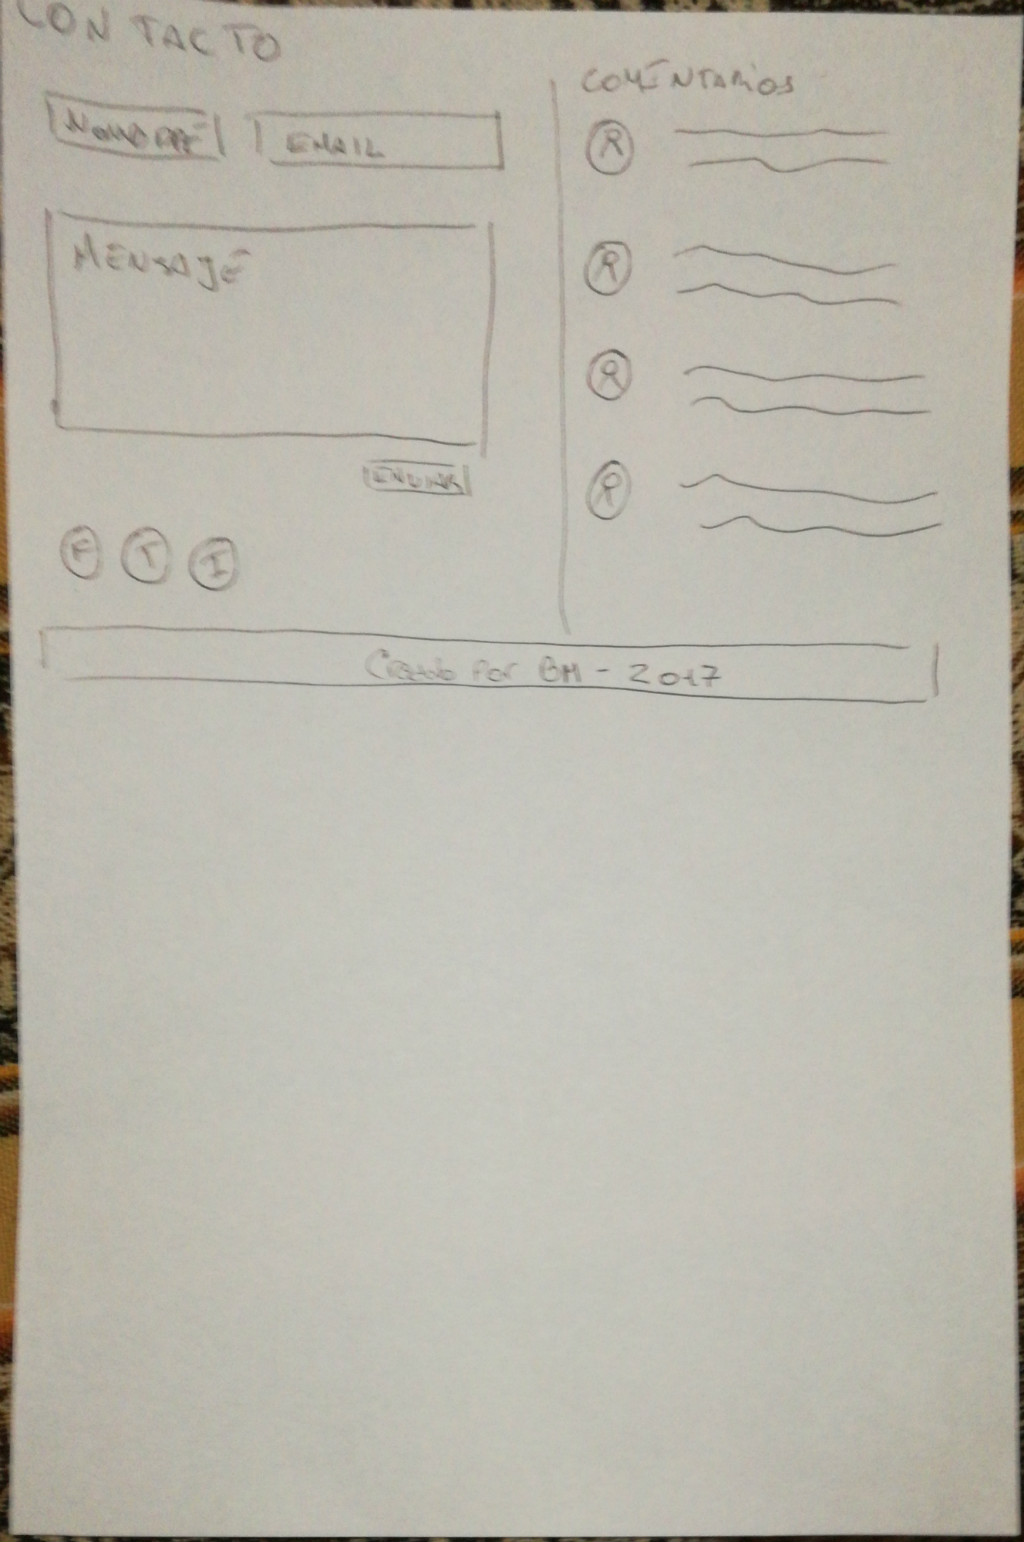 CONTACTO
NOMBRE
EMAIL
MENSAJE
ENVIAR
F T I
COMENTARIOS
R
R
R
R
Creado Por BM - 2017